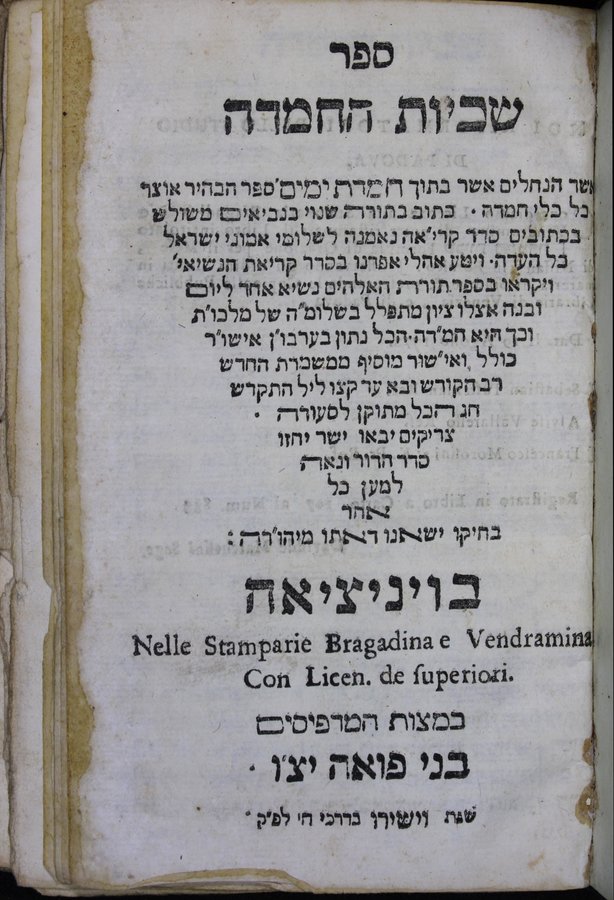 ספר
שכיות החמדה
אשר הנחלים אשר בתוך חמדת ימים ספר הבהיר אוצר
כל כלי חמדה · כתוב בתורה שנוי בנביאים משולש
בכתובים סדר קרי״אה נאמנה לשלומי אמוני ישראל
כל העדה · ויטע אהלי אפדנו בסדר קריאת הנשיאי׳
ויקראו בספר תורת האלהים נשיא אחד ליום
ובנה אצלו ציון מתפלל בשלומ״ה של מלכו״ת
וכך היא המ״דה · הכל נתון בערבו״ן אישו״ר
כולל ואי״שור מוסיף ממשמרת החדש
רב הקודש ובא עד קצו ליל התקדש
חג הכל מתוקן לסעודה ·
צדיקים יבאו ישר יחזו
סדר הדור ונאה
למען כל
אחד
בחיקו ישאנו דאתו מיהו״דה :
בויניציאה
Nelle Stamparie Bragadina e Vendramina
Con Licen. de ſuperiori.
במצות המדפיסים
בני פואה יצ״ו ·
שנת וישירו בדרכי ה׳ לפ״ק